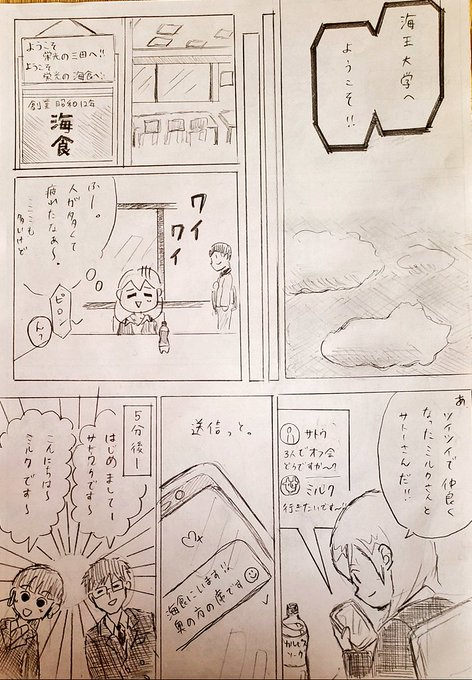 海王大学へ
ようこそ!!
ようこそ
栄光の三田へ!!
ようこそ
栄光の海食へ!!
創業昭和12年
海食
ワイ
ワイ
ふー。
人が多くて
疲れたなあ〜。
ここも
多いけど
ピロン♪
んっ
あ
ツイツイで仲良く
なったミルクさんと
サトーさんだ!!
サトウ
3人でオフ会
どうですか〜?
ミルク
行きたいです〜!!
カルピス
ソーダ
送信っと。
海食にいます!!
奥の方の席です
5分後ー
はじめましてー
サトウです〜
こんにちは〜
ミルクです〜